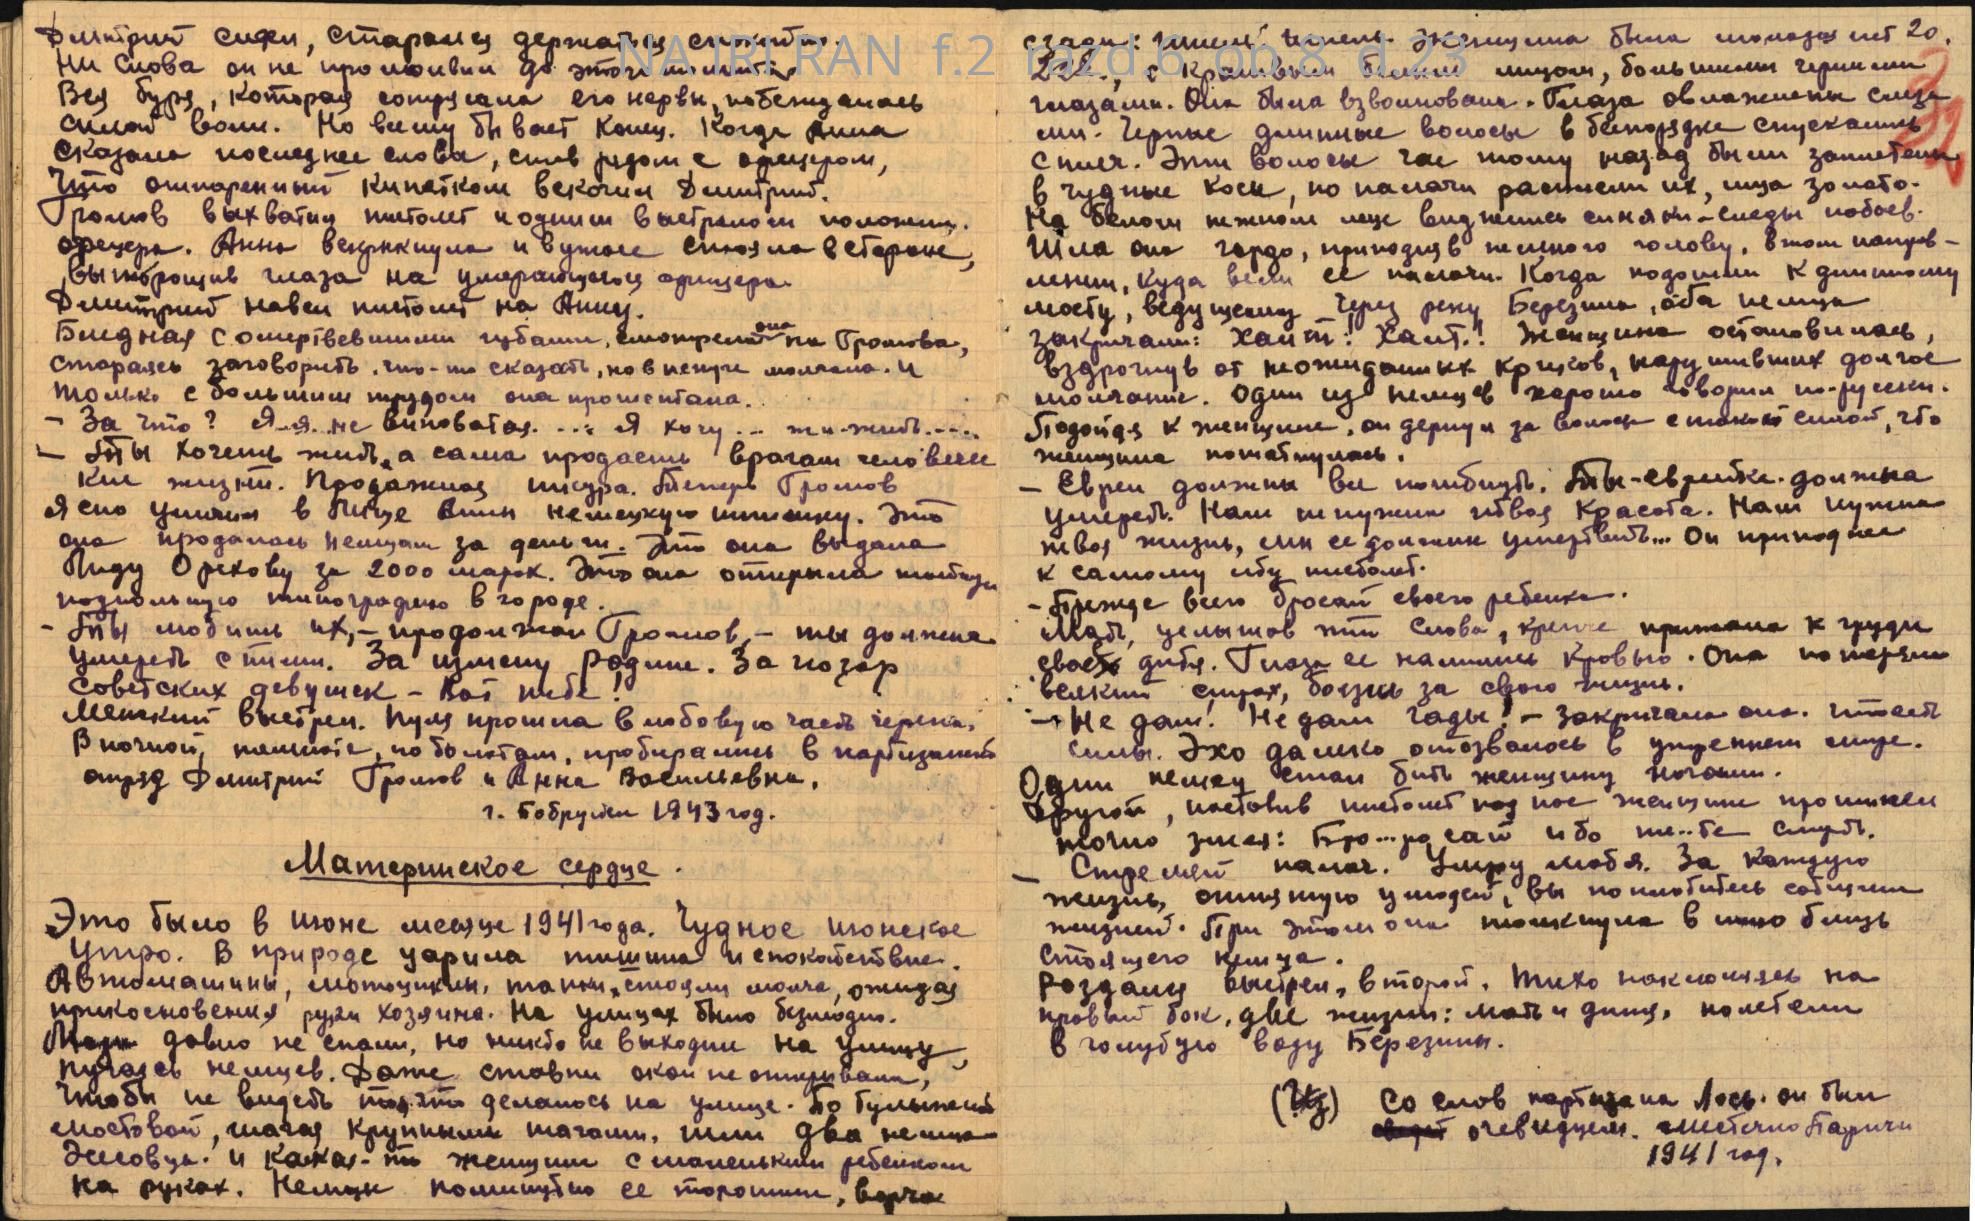 Дмитрий сидел, стараясь держаться спокойно.
Ни слова он не промолвил до этого момента.
Вся буря, которая сотрясала его нервы, побеждалась
силой воли. Но всему бывает конец. Когда Анна
сказала последнее слова, став рядом с офицером,
Что ошпаренный кипятком вскочил Дмитрий.
Громов выхватил пистолет и одним выстрелом положил
офицера. Анна вскрикнула и в ужасе стояла в стороне,
вытаращив глаза на умирающего офицера.
Дмитрий навел пистолет на Анну.
Бледная с омертвевшими губами, смотрела она на Громова,
стараясь заговорить, что-то сказать, но в испуге молчала. И
только с большим трудом она прошептала.
- За что? Я-я не виноватая.... Я хочу... жи-жить....
- Ты хочешь жить, а сама продаешь врагам человечес
кие жизни. Продажная шкура. Теперь Громов
ясно уличил в лице Анны немецкую шпионку. Это
она продалась немцам за деньги. Это она выдала
Лиду Орехову за 2000 марок. Это она открыла
подпольную типографию в городе.
- Ты любишь их, - продолжал Громов, - ты должна
умереть с ними. За измену Родине. За позор
советских девушек - Вот тебе!
Меткий выстрел. Пуля прошла в лобовую часть черепа.
В ночной темноте, по болотам, пробирались в партизанский
отряд Дмитрий Громов и Анна Васильевна.
г. Бобруйск 1943 год.
Материнское сердце.
Это было в июне месяце 1941 года. Чудное июньское
утро. В природе царила тишина и спокойствие.
Автомашины, мотоциклы, танки, стояли молча, ожидая
прикосновения руки хозяина. На улицах было безлюдно.
давно не спали, но никто не выходил на улицу,
пугаясь немцев. Даже ставни окон не открывали,
чтобы не видеть то, что делалось на улице. По булыжной
мостовой, шагая крупными шагами, шли два немца
Эсесовца. и какая-то женщина с маленьким ребенком
на руках. Немцы поминутно ее торопили, ворча
NA IRI RAN f.2 razd.6 op.8 d.23
сзади: шнель! шнель. Женщина была молодая лет 20.
22., с красивым белым лицом, большими черными
глазами. Она была взволнована. Глаза овлажнены слеза
ми. Черные длинные волосы в беспорядке спускались
с плеч. Эти волосы час тому назад были заплетены
в чудные косы, но палачи расплели их, ища золото.
На белом нежном лице виднелись синяки-следы побоев.
Шла она гордо, приподняв немного голову, в том направ-
лении, куда вели ее палачи. Когда подошли к длинному
мосту, ведущему через реку Березина, оба немца
закричали: Хальт! Хальт! Женщина остановилась,
вздрогнув от неожиданных криков, нарушивших долгое
молчание. Один из немцев хорошо говорил по-русски.
Подойдя к женщине, он дернул за волосы с такой силой, что
женщина пошатнулась.
- Евреи должны все погибнуть. Ты-еврейка должна
умереть. Нам не нужна твоя красота. Нам нужна
твоя жизнь, мы ее должны умертвить... Он приподнял
к самому лбу пистолет.
- Прежде всего бросай своего ребенка.
Мать, услышав эти слова, крепче прижала к груди
свое дитя. Глаза ее налились кровью. Она потеряла
всякий страх, боязнь за свою жизнь.
- Не дам! Не дам гады! - закричала она.
силы. Эхо далеко отозвалось в утреннем мире.
Один немец стал бить женщину ногами.
Другой, поставив пистолет под нос женщине прошипел
точно змея: Бро...росай ибо те..бе смерть.
- Стреляй палач. Умру любя. За каждую
жизнь, отнятую у людей, вы поплатитесь сотнями
жизней. При этом она толкнула в близь
стоящего немца.
Раздался выстрел, второй. Тихо поклонясь на
правый бок, две жизни: мать и дитя, полетели
в голубую воду Березины.
Со слов партизана Лось. он был
очевидцем. местечко Паричи
1941 год.